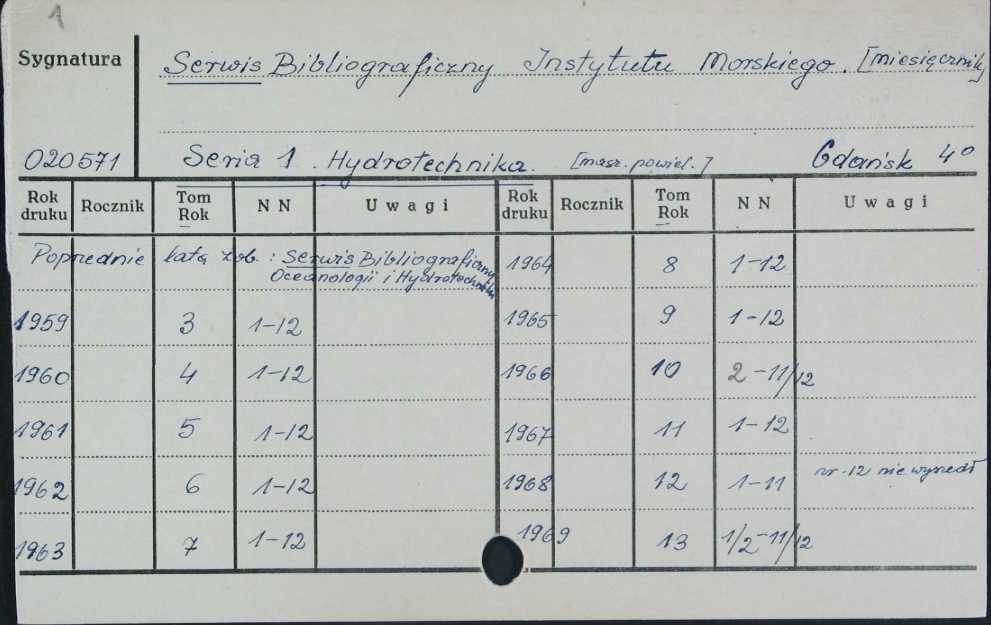 1
Sygnatura
Serwis Bibliograficzny Instytutu Morskiego. [miesięcznik]
020571
Seria 1. Hydrotechnika. [masz. powiel.] Gdańsk 4°
Rok druku Rocznik Tom Rok NN Uwagi Rok druku Rocznik Tom Rok NN Uwagi
Poprzednie lata zob.: Serwis Bibliograficzny
Oceanologii i Hydrotechniki
1964 8 1-12
1959 3 1-12 1965 9 1-12
1960 4 1-12 1966 10 2-11/12
1961 5 1-12 1967 11 1-12
1962 6 1-12 1968 12 1-11 nr 12 nie wyszedł
1963 7 1-12 1969 13 1/2-11/12